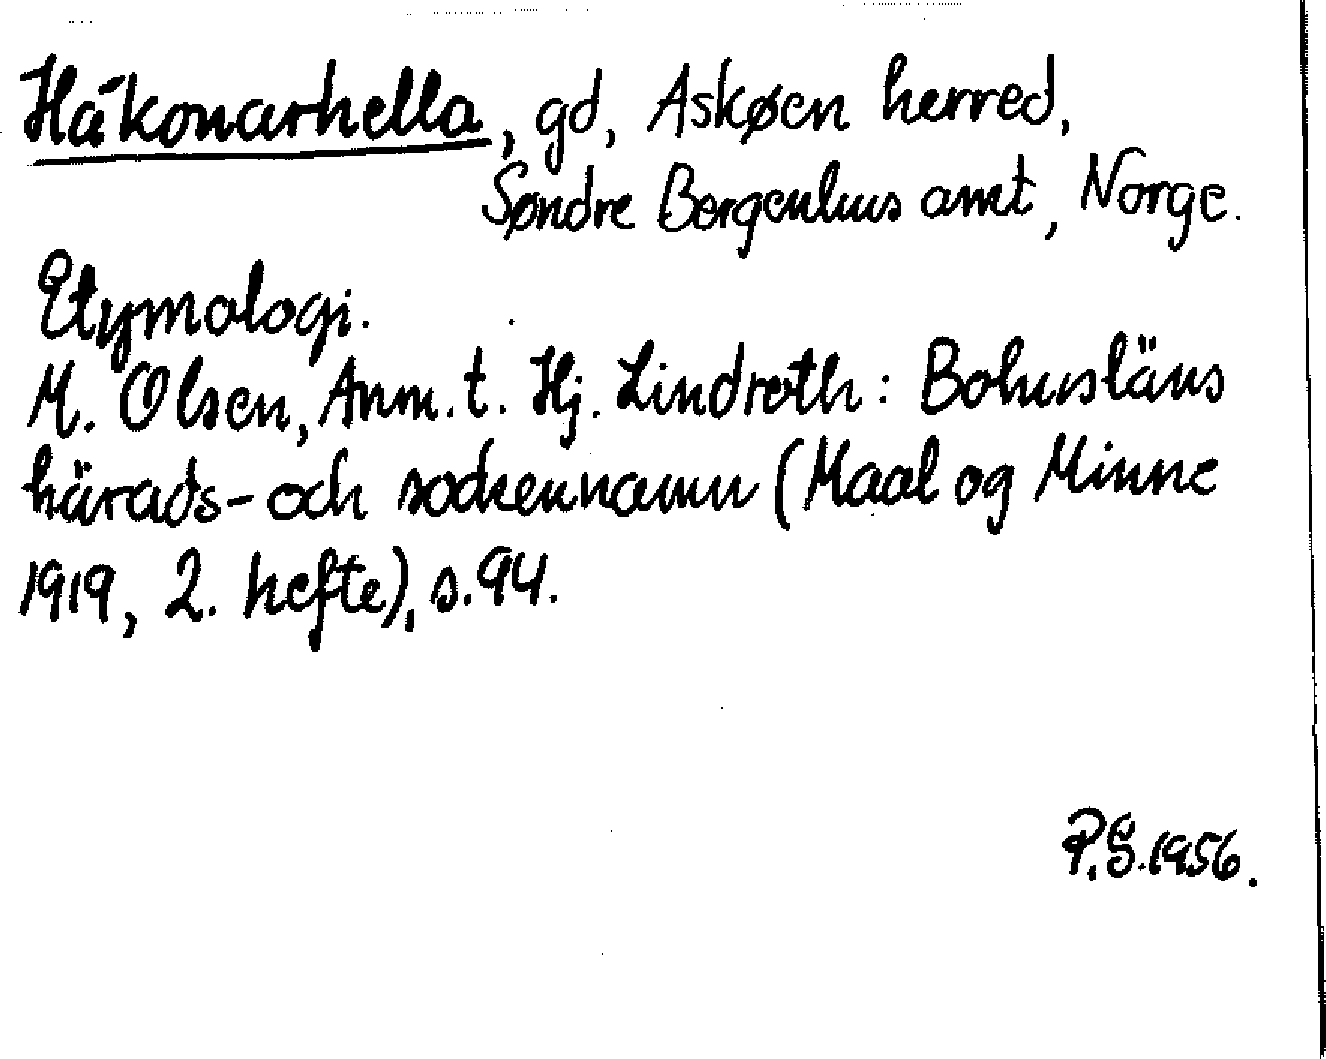 Hákonarhella, gd, Askøen herred,
Søndre Bergenhus amt, Norge.
Etymologi.
M. Olsen, Anm. t. Hj. Lindroth: Bohusläns
härads- och sockennamn (Maal og Minne
1919, 2. hefte), s. 94.
P.S. 1956.